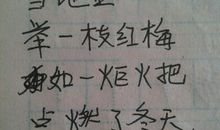 举一枝红梅
如一炬火把
点燃了冬天